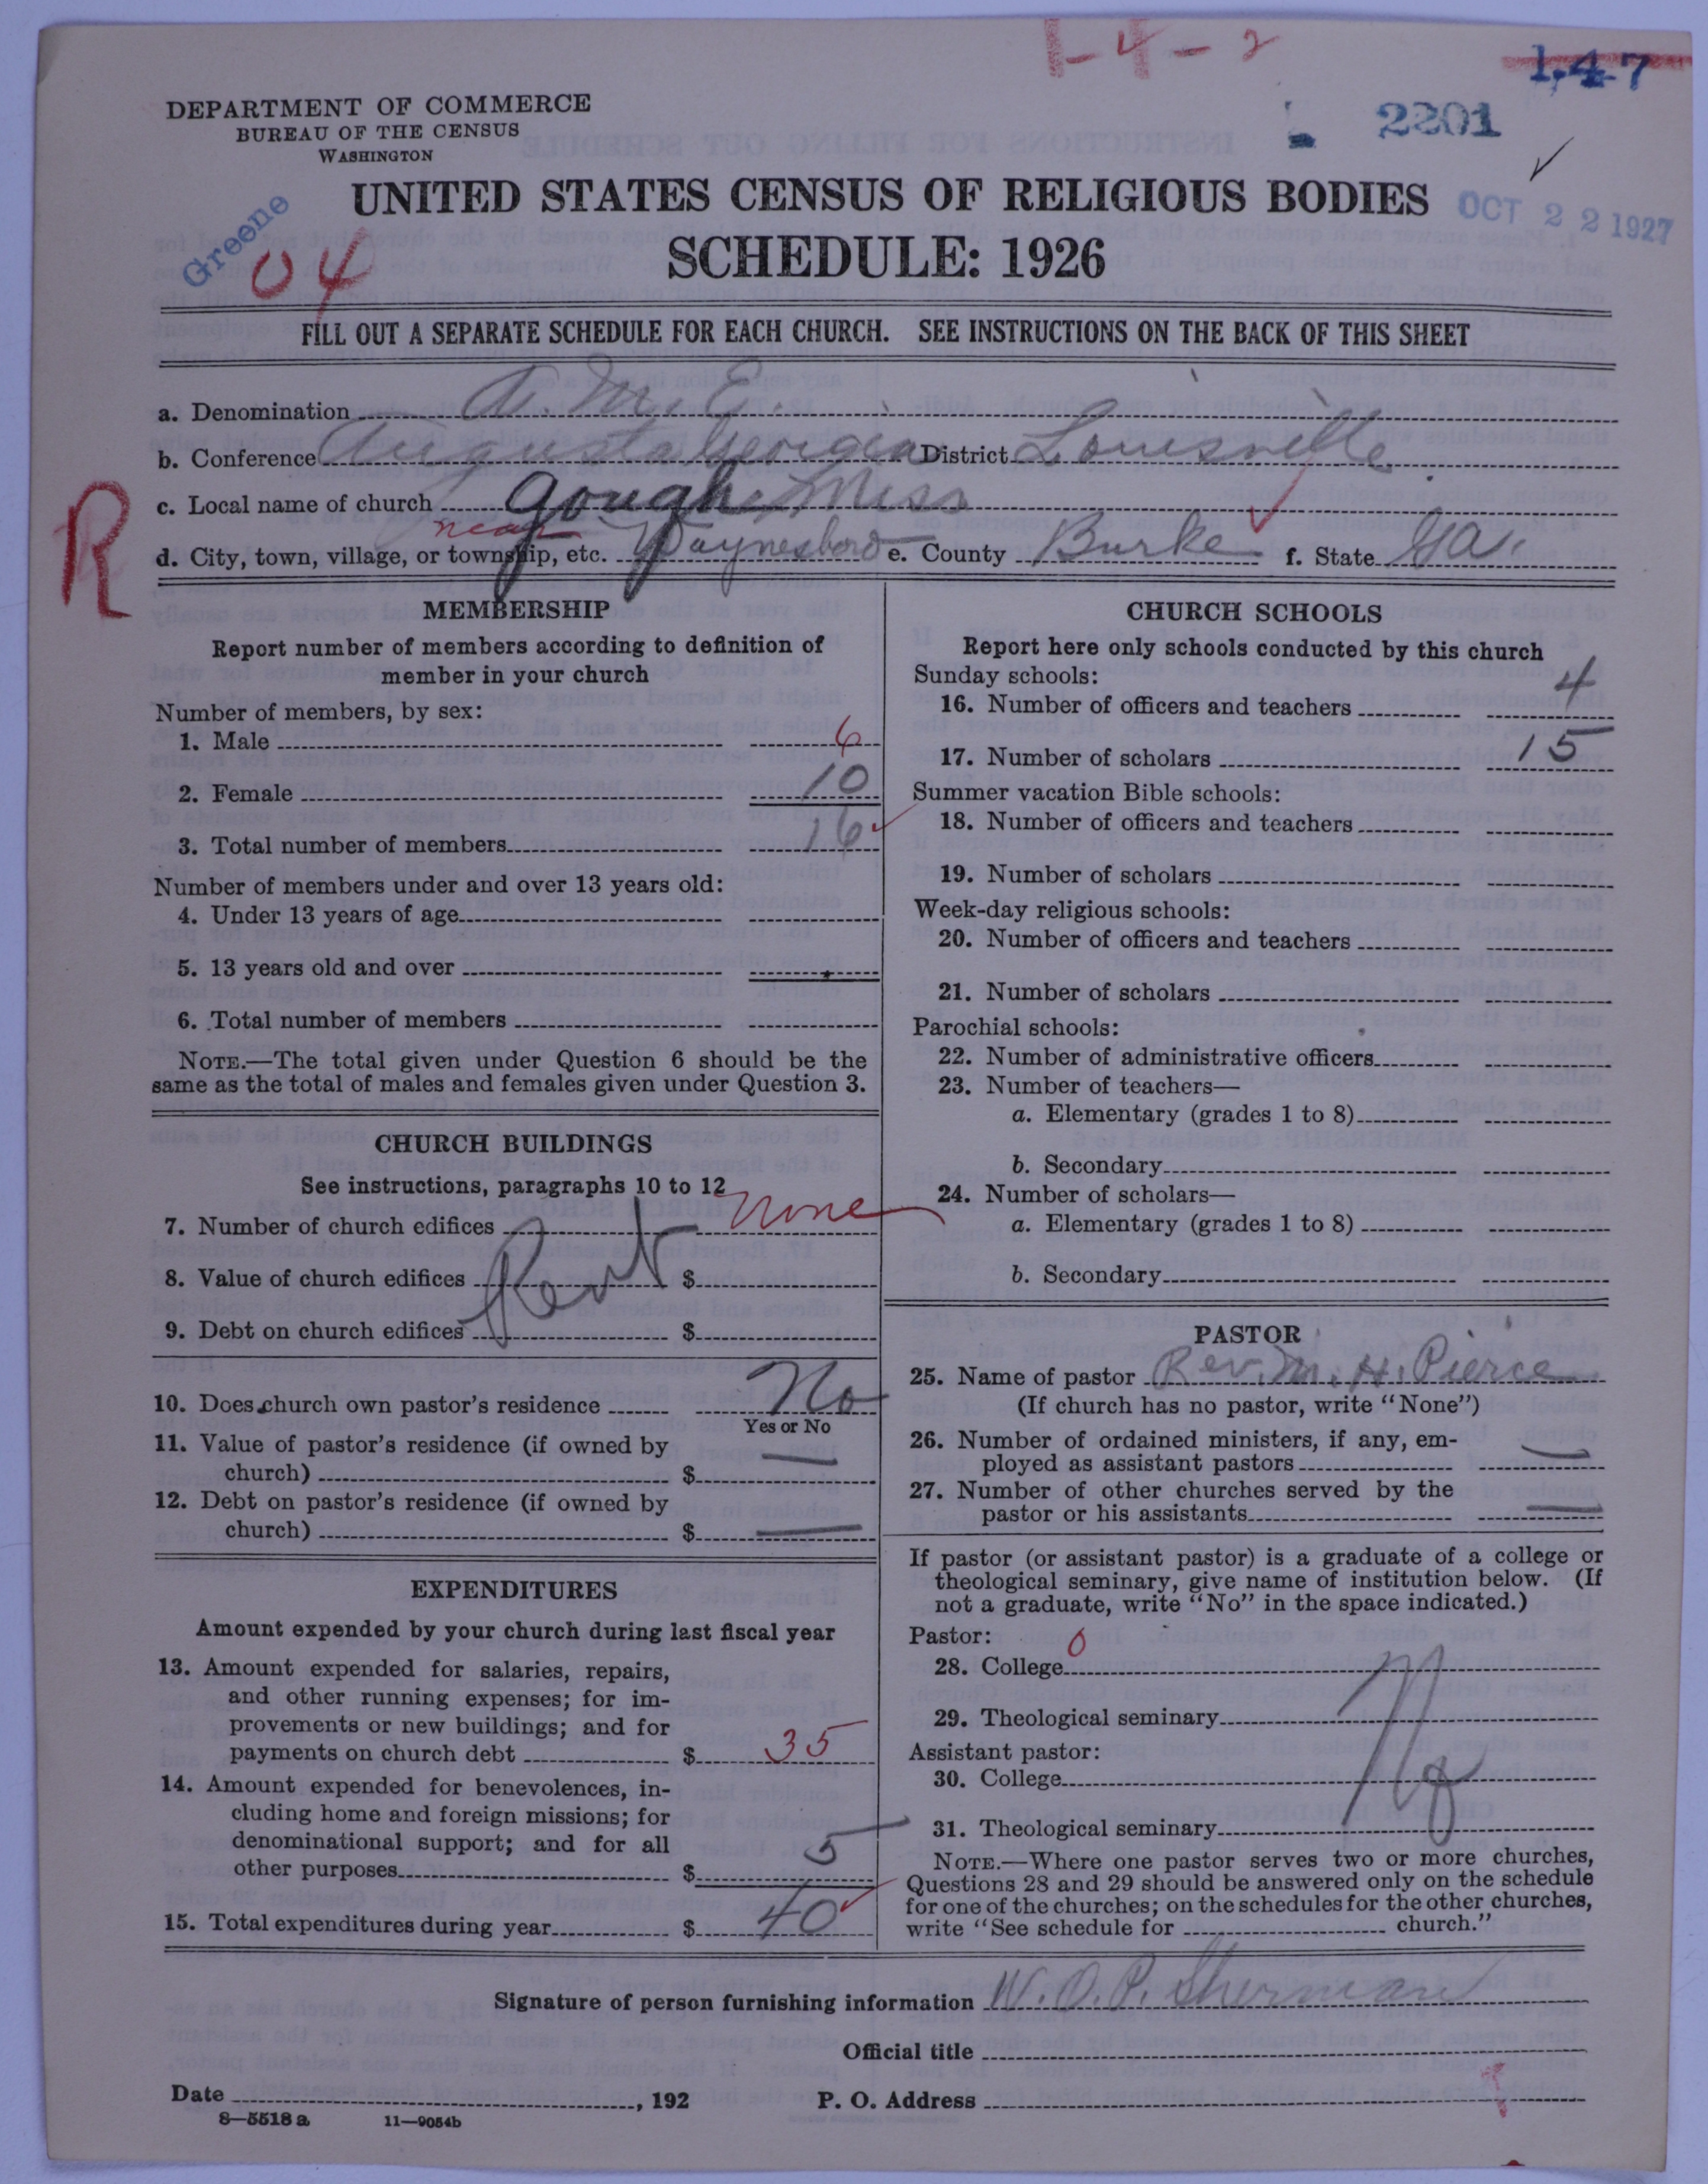 1-4-2
1,47
2201
DEPARTMENT OF COMMERCE
BUREAU OF THE CENSUS
WASHINGTON
UNITED STATES CENSUS OF RELIGIOUS BODIES
OCT 22 1927
SCHEDULE: 1926
Greene
04
FILL OUT A SEPARATE SCHEDULE FOR EACH CHURCH. SEE INSTRUCTIONS ON THE BACK OF THIS SHEET
a. Denomination A. M. E.
b. Conference Augusta Georgia District Louisville
c. Local name of church Gough Miss
R
near
d. City, town, village, or township, etc. Waynesboro e. County Burke f. State Ga.
MEMBERSHIP
Report number of members according to definition of
member in your church
Number of members, by sex:
1. Male 6
2. Female 10
3. Total number of members 16
Number of members under and over 13 years old:
4. Under 13 years of age
5. 13 years old and over
6. Total number of members
NOTE.—The total given under Question 6 should be the
same as the total of males and females given under Question 3.
CHURCH BUILDINGS
See instructions, paragraphs 10 to 12
7. Number of church edifices none
8. Value of church edifices Rent $
9. Debt on church edifices $
10. Does church own pastor's residence No
Yes or No
11. Value of pastor's residence (if owned by
church) $ —
12. Debt on pastor's residence (if owned by
church) $ —
EXPENDITURES
Amount expended by your church during last fiscal year
13. Amount expended for salaries, repairs,
and other running expenses; for im-
provements or new buildings; and for
payments on church debt $ 35
14. Amount expended for benevolences, in-
cluding home and foreign missions; for
denominational support; and for all
other purposes $ 5
15. Total expenditures during year $ 40
CHURCH SCHOOLS
Report here only schools conducted by this church
Sunday schools:
16. Number of officers and teachers 4
17. Number of scholars 15
Summer vacation Bible schools:
18. Number of officers and teachers
19. Number of scholars
Week-day religious schools:
20. Number of officers and teachers
21. Number of scholars
Parochial schools:
22. Number of administrative officers
23. Number of teachers—
a. Elementary (grades 1 to 8)
b. Secondary
24. Number of scholars—
a. Elementary (grades 1 to 8)
b. Secondary
PASTOR
25. Name of pastor Rev. M. H. Pierce
(If church has no pastor, write "None")
26. Number of ordained ministers, if any, em-
ployed as assistant pastors —
27. Number of other churches served by the
pastor or his assistants —
If pastor (or assistant pastor) is a graduate of a college or
theological seminary, give name of institution below. (If
not a graduate, write "No" in the space indicated.)
Pastor:
28. College 0
29. Theological seminary No
Assistant pastor:
30. College
31. Theological seminary
NOTE.—Where one pastor serves two or more churches,
Questions 28 and 29 should be answered only on the schedule
for one of the churches; on the schedules for the other churches,
write "See schedule for church."
Signature of person furnishing information W. O. P. Sherman
Official title
Date , 192 P. O. Address
8—5518 a 11—9054b